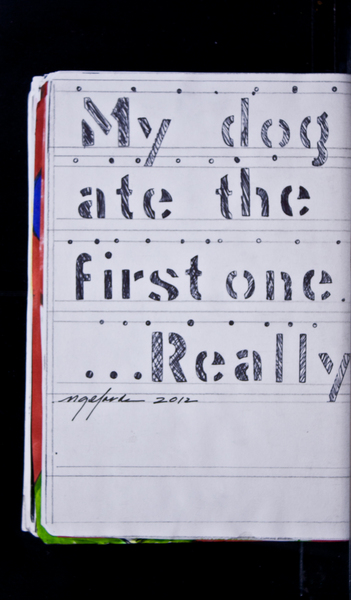 My dog
ate the
first one.
...Really
2012